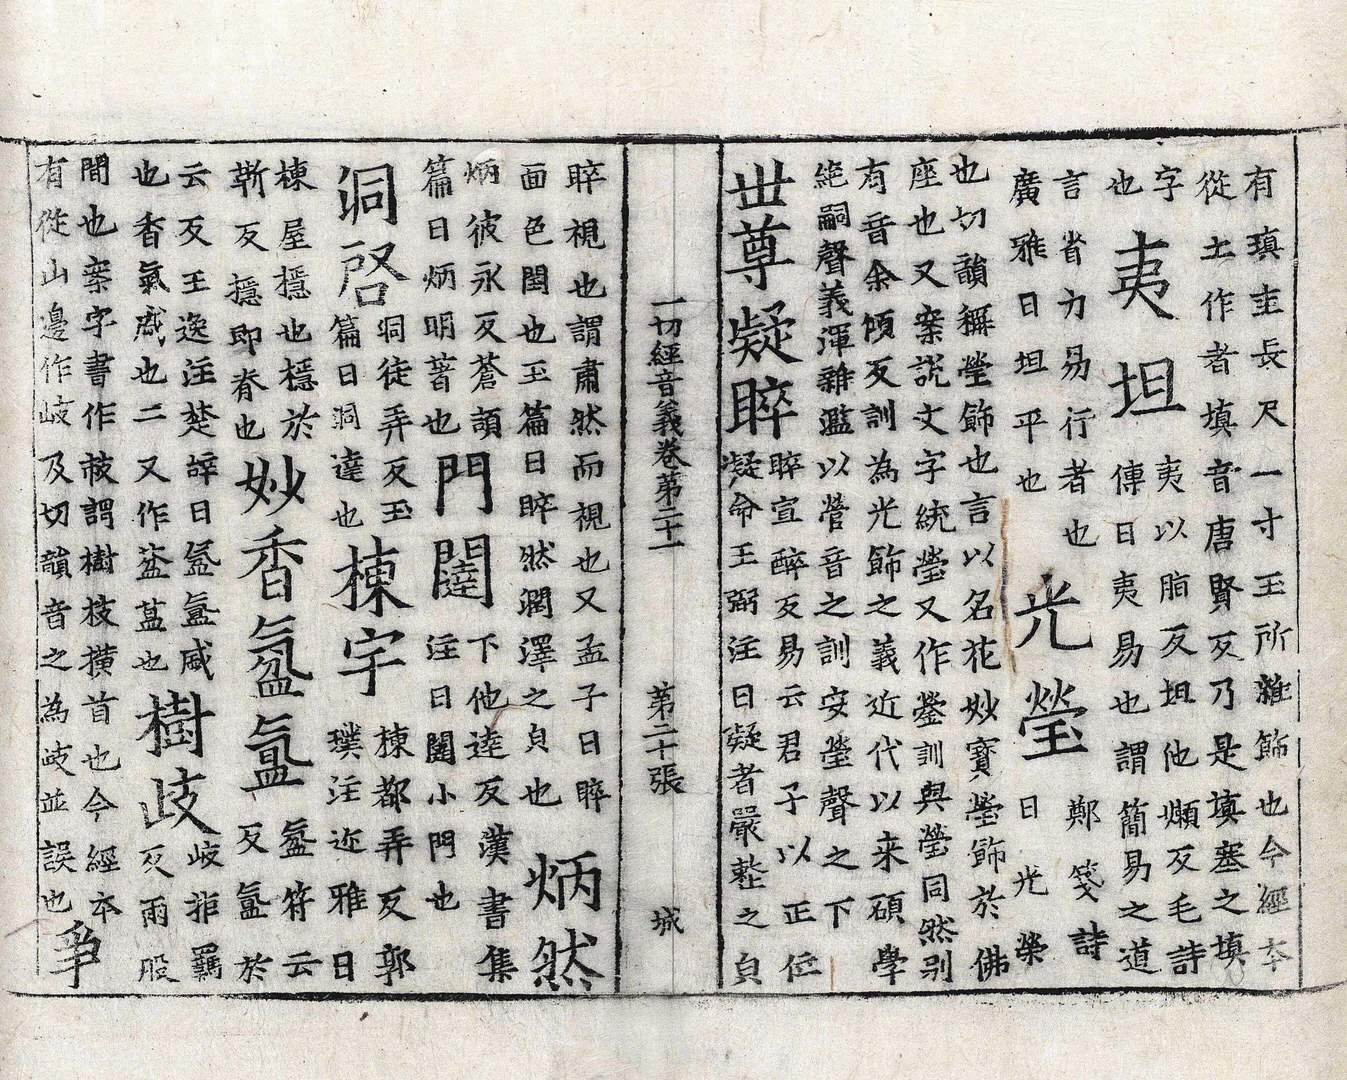 有瑱圭長尺一寸玉所雜飾也今經本
從土作者填音唐賢反乃是填塞之填
字
也
夷坦
夷以脂反坦他嬾反毛詩
傳曰夷易也謂簡易之道
言省力易行者也
廣雅曰坦平也
光瑩
鄭箋詩
曰光榮
也切韻稱瑩飾也言以名花妙寶瑩飾於佛
座也又案說文字統瑩又作鎣訓與瑩同然別
有音余傾反訓為光飾之義近代以来碩學
絕嗣聲義渾雜濫以營音之訓安瑩聲之下
世尊凝睟
睟宣醉反易云君子以正位
凝命王弼注曰凝者嚴整之皃
一切經音義卷第二十一 第二十張 城
睟視也謂肅然而視也又孟子曰睟
面色閏也玉篇曰睟然潤澤之皃也
炳然
炳彼永反蒼頡
篇曰炳明著也
門闥
下他逵反漢書集
注曰闥小門也
洞啓
洞徒弄反玉
篇曰洞達也
棟宇
棟都弄反郭
璞注迩雅曰
棟屋檼也檼於
靳反檼即脊也
妙香氛氳
氛符云
反氳於
云反王逸注楚辝曰氛氳盛
也香氣盛也二又作葐蒀也
樹岐
岐拒羈
反兩股
間也案字書作𢺵謂樹枝橫首也今經本
有從山邊作岐及切韻音之為歧並誤也
爭